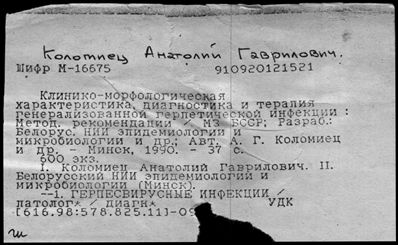 Коломиец Анатолий Гаврилович.
Шифр М-16675 910920121521
Клинико-морфологическая
характеристика, диагностика и терапия
генерализованной герпетической инфекции :
Метод. рекомендации / МЗ БССР; Разраб.:
Белорус. НИИ эпидемиологии и
микробиологии и др.; Авт. А. Г. Коломиец
и др. - Минск, 1990. - 37 с.
600 экз.
I. Коломиец Анатолий Гаврилович. II.
Белорусский НИИ эпидемиологии и
микробиологии (Минск).
--1. ГЕРПЕСВИРУСНЫЕ ИНФЕКЦИИ /
патолог* / диагн* УДК
[616.98:578.825.11]-09